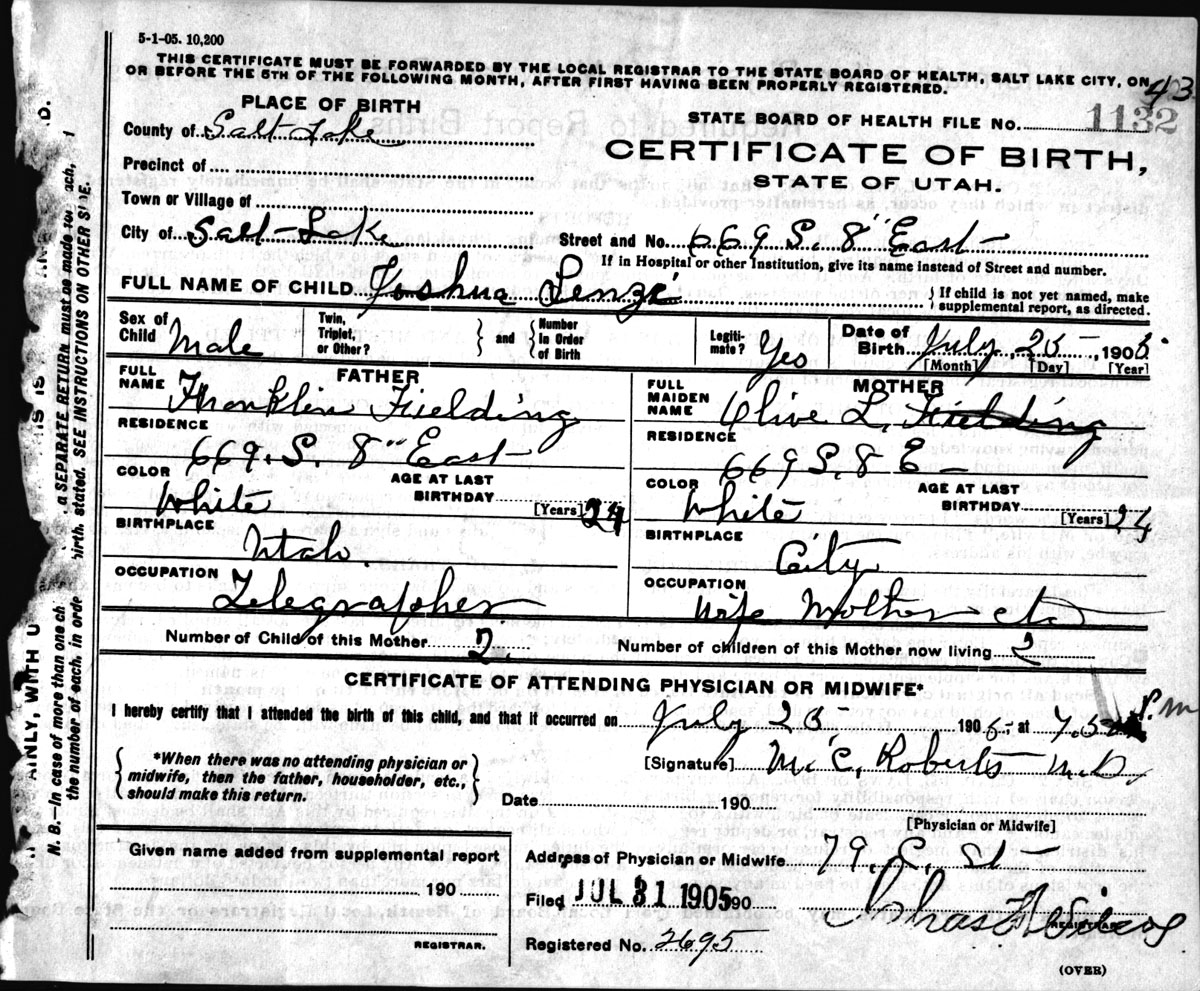 5-1-05. 10,200
THIS CERTIFICATE MUST BE FORWARDED BY THE LOCAL REGISTRAR TO THE STATE BOARD OF HEALTH, SALT LAKE CITY, ON
OR BEFORE THE 5TH OF THE FOLLOWING MONTH, AFTER FIRST HAVING BEEN PROPERLY REGISTERED.
43
PLACE OF BIRTH
County of Salt Lake
Precinct of
Town or Village of
City of Salt-Lake
STATE BOARD OF HEALTH FILE No. 1132
CERTIFICATE OF BIRTH,
STATE OF UTAH.
Street and No. 669 S. 8" East
If in Hospital or other Institution, give its name instead of Street and number.
FULL NAME OF CHILD Joshua
} If child is not yet named, make
supplemental report, as directed.
Sex of Child Male
Twin, Triplet, or Other?
} and {
Number in Order of Birth
Legiti-mate? Yes
Date of Birth July, 25, 1905.
[Month] [Day] [Year]
FATHER
FULL NAME Franklin Fielding
RESIDENCE
669. S. 8" East
COLOR White
AGE AT LAST BIRTHDAY 24
[Years]
BIRTHPLACE
Utah.
OCCUPATION
Telegrapher
MOTHER
FULL MAIDEN NAME Olive L. Fielding
RESIDENCE
669 S. 8 E
COLOR White
AGE AT LAST BIRTHDAY 24
[Years]
BIRTHPLACE
City
OCCUPATION
Wife Mother etc
Number of Child of this Mother 2.
Number of children of this Mother now living 2
CERTIFICATE OF ATTENDING PHYSICIAN OR MIDWIFE*
I hereby certify that I attended the birth of this child, and that it occurred on July 25 1905, at P.m
{ *When there was no attending physician or
midwife, then the father, householder, etc.,
should make this return. }
[Signature] M. C. Roberts M.D.
Date 190
[Physician or Midwife]
Given name added from supplemental report
190
REGISTRAR.
Address of Physician or Midwife 79. St
Filed JUL 31 1905 90
Chas
REGISTRAR
Registered No. 2695
(OVER)
N. B.—In case of more than one ch a SEPARATE RETURN must be made for each,
the number of each, in orde birth, stated. SEE INSTRUCTIONS ON OTHER SIDE.
AINLY, WITH U HIS IS